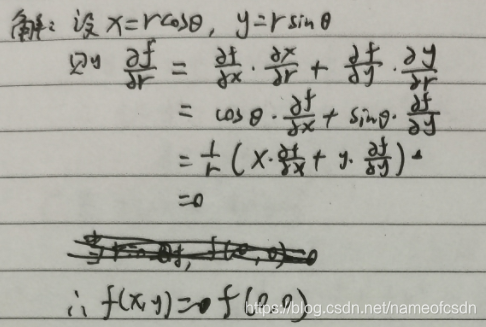 解：设 x=rcosθ, y=rsinθ
则 ∂f/∂r = ∂f/∂x · ∂x/∂r + ∂f/∂y · ∂y/∂r
= cosθ · ∂f/∂x + sinθ · ∂f/∂y
= 1/r (x · ∂f/∂x + y · ∂f/∂y)
=0
∴ f(x,y)= f(0,0)
https://blog.csdn.net/nameofcsdn